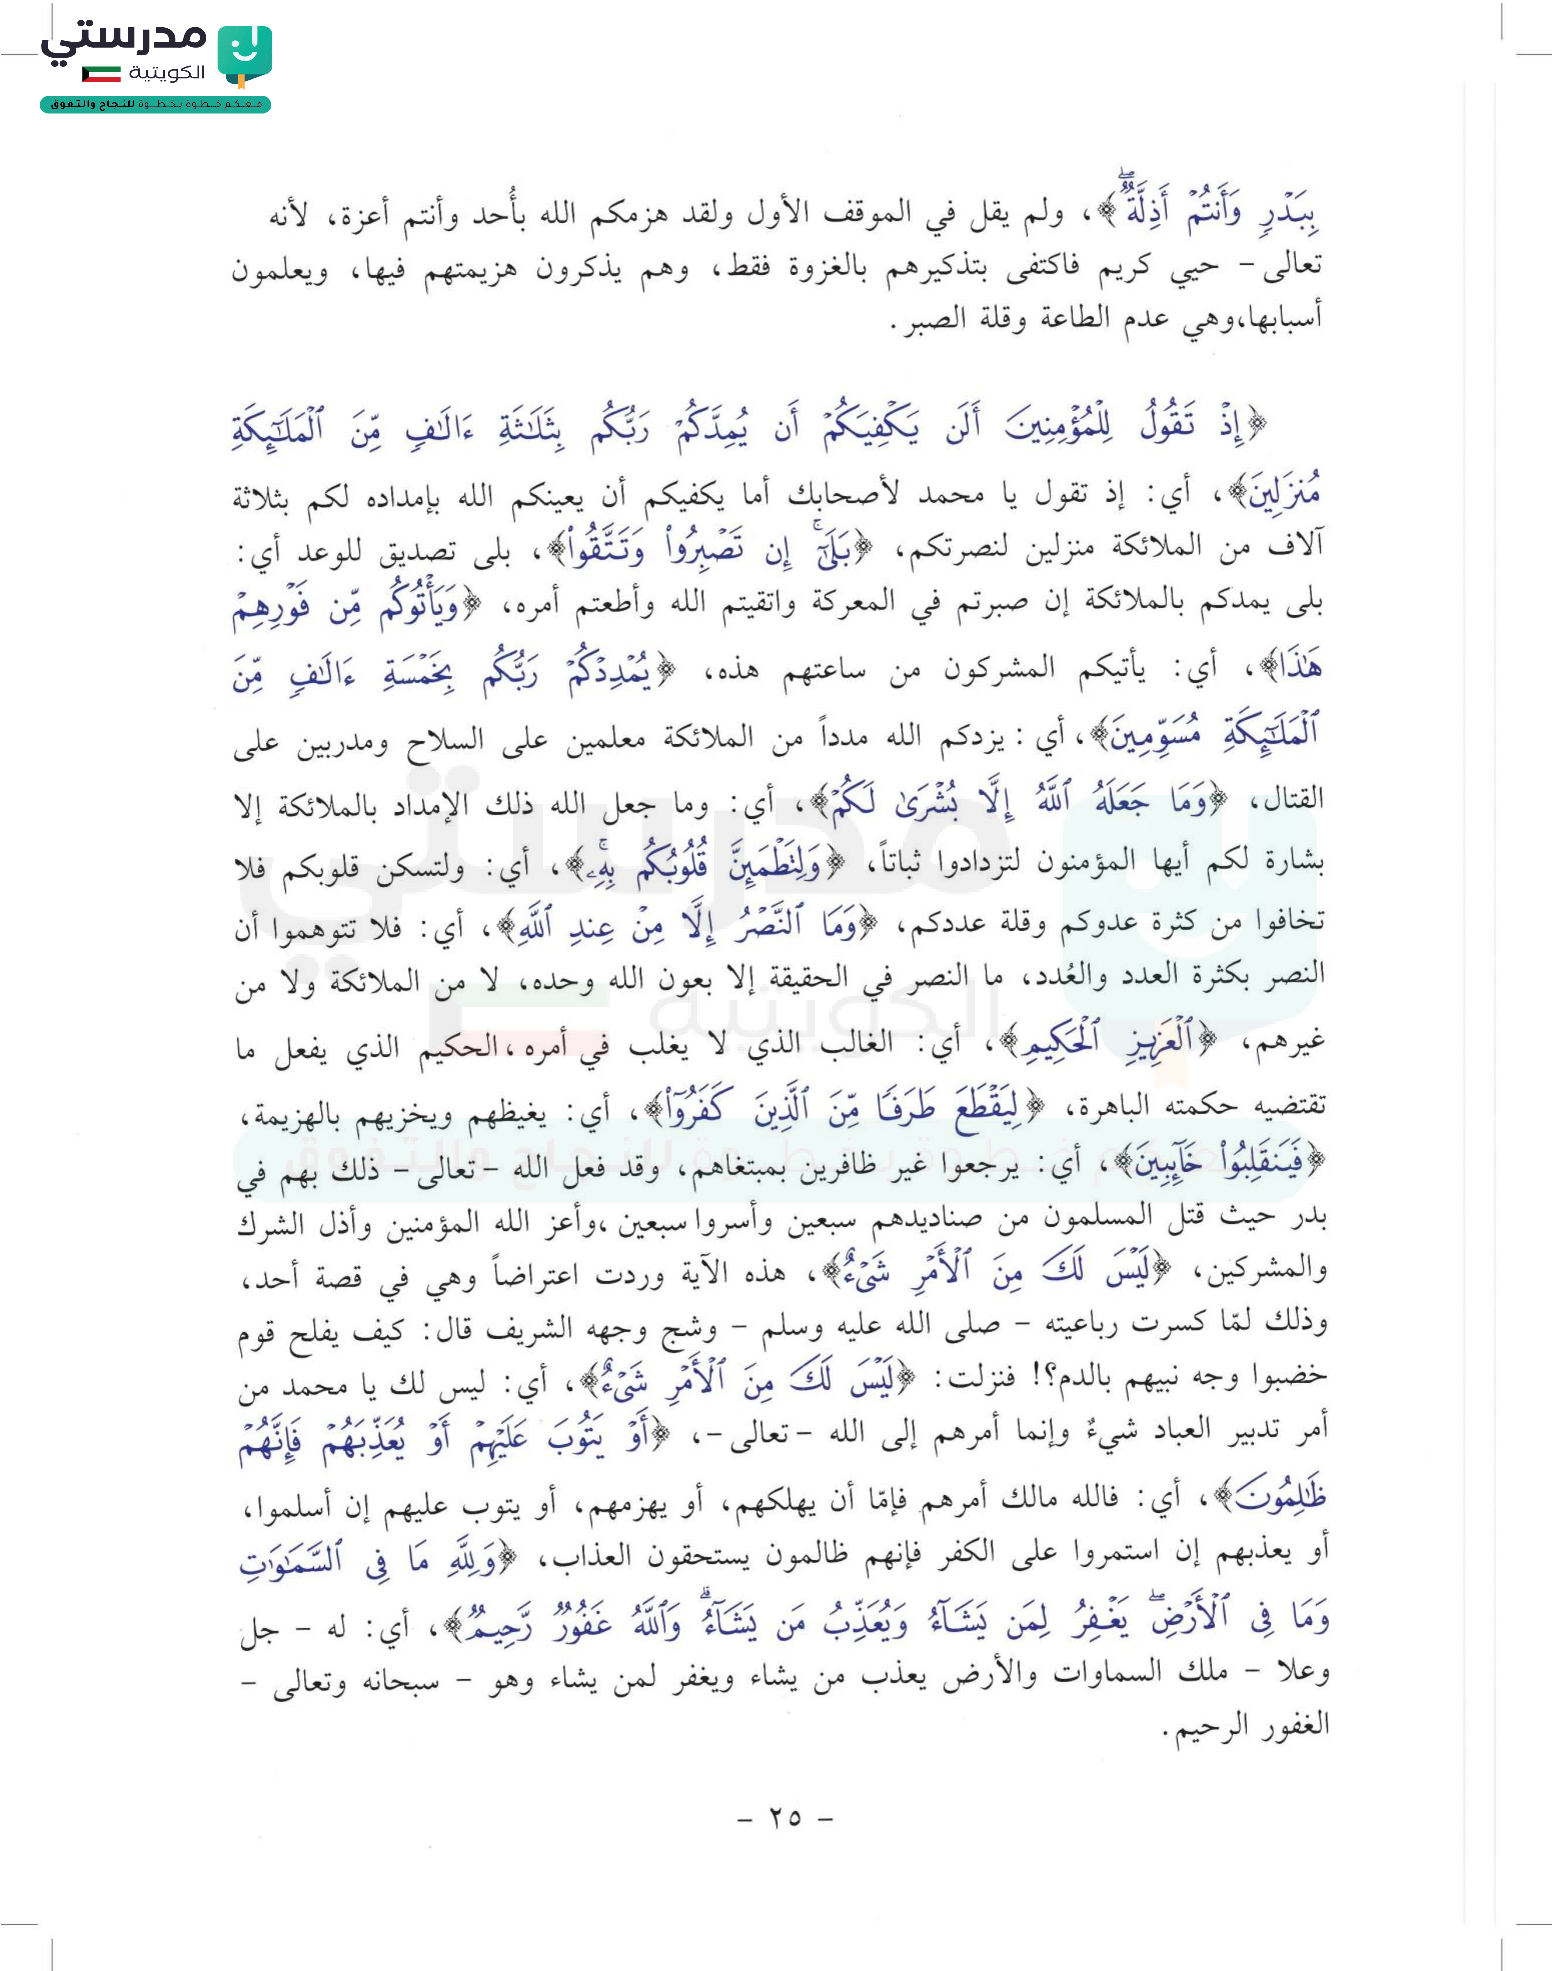 مدرستي
الكويتية
معكم خطوة بخطوة للنجاح والتفوق
بِبَدْرٍ وَأَنتُمْ أَذِلَّةٌ ۖ﴾، ولم يقل في الموقف الأول ولقد هزمكم الله بأُحد وأنتم أعزة، لأنه
تعالى - حيي كريم فاكتفى بتذكيرهم بالغزوة فقط، وهم يذكرون هزيمتهم فيها، ويعلمون
أسبابها،وهي عدم الطاعة وقلة الصبر.
﴿إِذْ تَقُولُ لِلْمُؤْمِنِينَ أَلَن يَكْفِيَكُمْ أَن يُمِدَّكُمْ رَبُّكُم بِثَلَـٰثَةِ ءَالَـٰفٍ مِّنَ ٱلْمَلَـٰٓئِكَةِ
مُنزَلِينَ﴾، أي: إذ تقول يا محمد لأصحابك أما يكفيكم أن يعينكم الله بإمداده لكم بثلاثة
آلاف من الملائكة منزلين لنصرتكم، ﴿بَلَىٰٓ ۚ إِن تَصْبِرُوا۟ وَتَتَّقُوا۟﴾، بلى تصديق للوعد أي:
بلى يمدكم بالملائكة إن صبرتم في المعركة واتقيتم الله وأطعتم أمره، ﴿وَيَأْتُوكُم مِّن فَوْرِهِمْ
هَـٰذَا﴾، أي: يأتيكم المشركون من ساعتهم هذه، ﴿يُمْدِدْكُمْ رَبُّكُم بِخَمْسَةِ ءَالَـٰفٍ مِّنَ
ٱلْمَلَـٰٓئِكَةِ مُسَوِّمِينَ﴾، أي : يزدكم الله مدداً من الملائكة معلمين على السلاح ومدربين على
القتال، ﴿وَمَا جَعَلَهُ ٱللَّهُ إِلَّا بُشْرَىٰ لَكُمْ﴾، أي: وما جعل الله ذلك الإمداد بالملائكة إلا
بشارة لكم أيها المؤمنون لتزدادوا ثباتاً، ﴿وَلِتَطْمَئِنَّ قُلُوبُكُم بِهِۦ ۚ﴾، أي: ولتسكن قلوبكم فلا
تخافوا من كثرة عدوكم وقلة عددكم، ﴿وَمَا ٱلنَّصْرُ إِلَّا مِنْ عِندِ ٱللَّهِ﴾، أي: فلا تتوهموا أن
النصر بكثرة العدد والعُدد، ما النصر في الحقيقة إلا بعون الله وحده، لا من الملائكة ولا من
غيرهم، ﴿ٱلْعَزِيزِ ٱلْحَكِيمِ﴾، أي: الغالب الذي لا يغلب في أمره ،الحكيم الذي يفعل ما
تقتضيه حكمته الباهرة، ﴿لِيَقْطَعَ طَرَفًا مِّنَ ٱلَّذِينَ كَفَرُوٓا۟﴾، أي: يغيظهم ويخزيهم بالهزيمة،
﴿فَيَنقَلِبُوا۟ خَآئِبِينَ﴾، أي: يرجعوا غير ظافرين بمبتغاهم، وقد فعل الله -تعالى- ذلك بهم في
بدر حيث قتل المسلمون من صناديدهم سبعين وأسروا سبعين ،وأعز الله المؤمنين وأذل الشرك
والمشركين، ﴿لَيْسَ لَكَ مِنَ ٱلْأَمْرِ شَىْءٌ﴾، هذه الآية وردت اعتراضاً وهي في قصة أحد،
وذلك لمّا كسرت رباعيته - صلى الله عليه وسلم - وشج وجهه الشريف قال: كيف يفلح قوم
خضبوا وجه نبيهم بالدم؟! فنزلت: ﴿لَيْسَ لَكَ مِنَ ٱلْأَمْرِ شَىْءٌ﴾، أي: ليس لك يا محمد من
أمر تدبير العباد شيءٌ وإنما أمرهم إلى الله -تعالى-، ﴿أَوْ يَتُوبَ عَلَيْهِمْ أَوْ يُعَذِّبَهُمْ فَإِنَّهُمْ
ظَـٰلِمُونَ﴾، أي: فالله مالك أمرهم فإمّا أن يهلكهم، أو يهزمهم، أو يتوب عليهم إن أسلموا،
أو يعذبهم إن استمروا على الكفر فإنهم ظالمون يستحقون العذاب، ﴿وَلِلَّهِ مَا فِى ٱلسَّمَـٰوَٰتِ
وَمَا فِى ٱلْأَرْضِ ۖ يَغْفِرُ لِمَن يَشَآءُ وَيُعَذِّبُ مَن يَشَآءُ ۗ وَٱللَّهُ غَفُورٌ رَّحِيمٌ﴾، أي: له - جل
وعلا - ملك السماوات والأرض يعذب من يشاء ويغفر لمن يشاء وهو - سبحانه وتعالى -
الغفور الرحيم.
- ٢٥ -